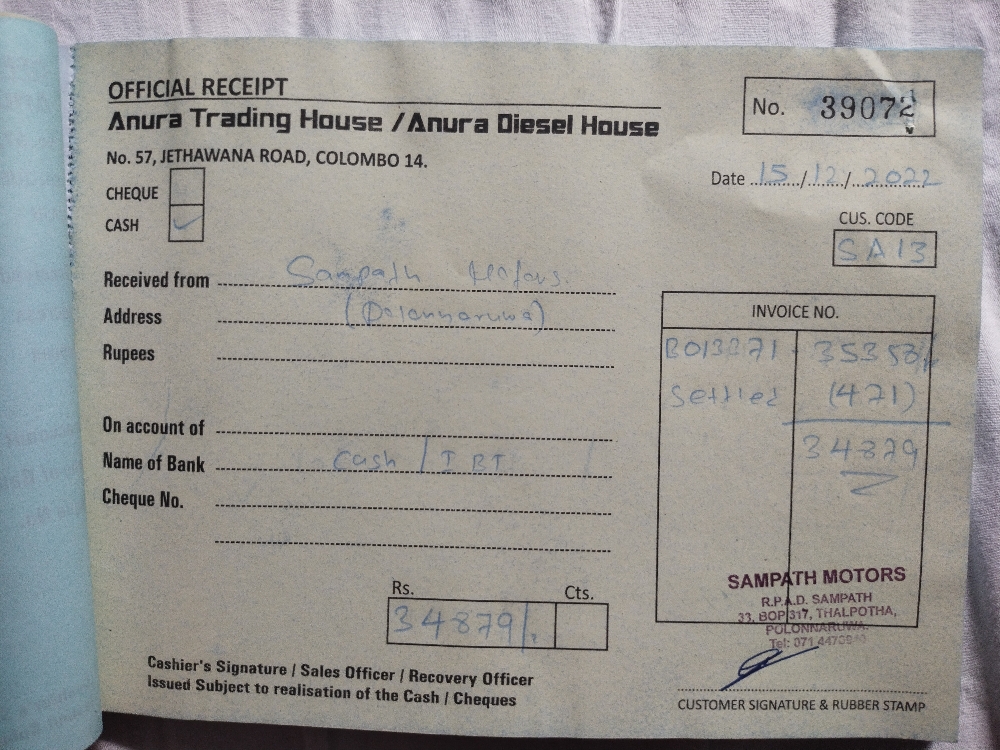 OFFICIAL RECEIPT
Anura Trading House / Anura Diesel House
No. 57, JETHAWANA ROAD, COLOMBO 14.
No. 39072
Date 15/12/2022
CHEQUE
CASH ✓
CUS. CODE
SA13
Received from Sampath Motors.
Address (Polonnaruwa)
Rupees
On account of
Name of Bank Cash / IBT
Cheque No.
INVOICE NO.
35350/
Settled (471)
34879
Rs. Cts.
34879/.
SAMPATH MOTORS
R.P.A.D. SAMPATH
33, BOP 317, THALPOTHA,
POLONNARUWA.
Tel: 071
Cashier's Signature / Sales Officer / Recovery Officer
Issued Subject to realisation of the Cash / Cheques
CUSTOMER SIGNATURE & RUBBER STAMP